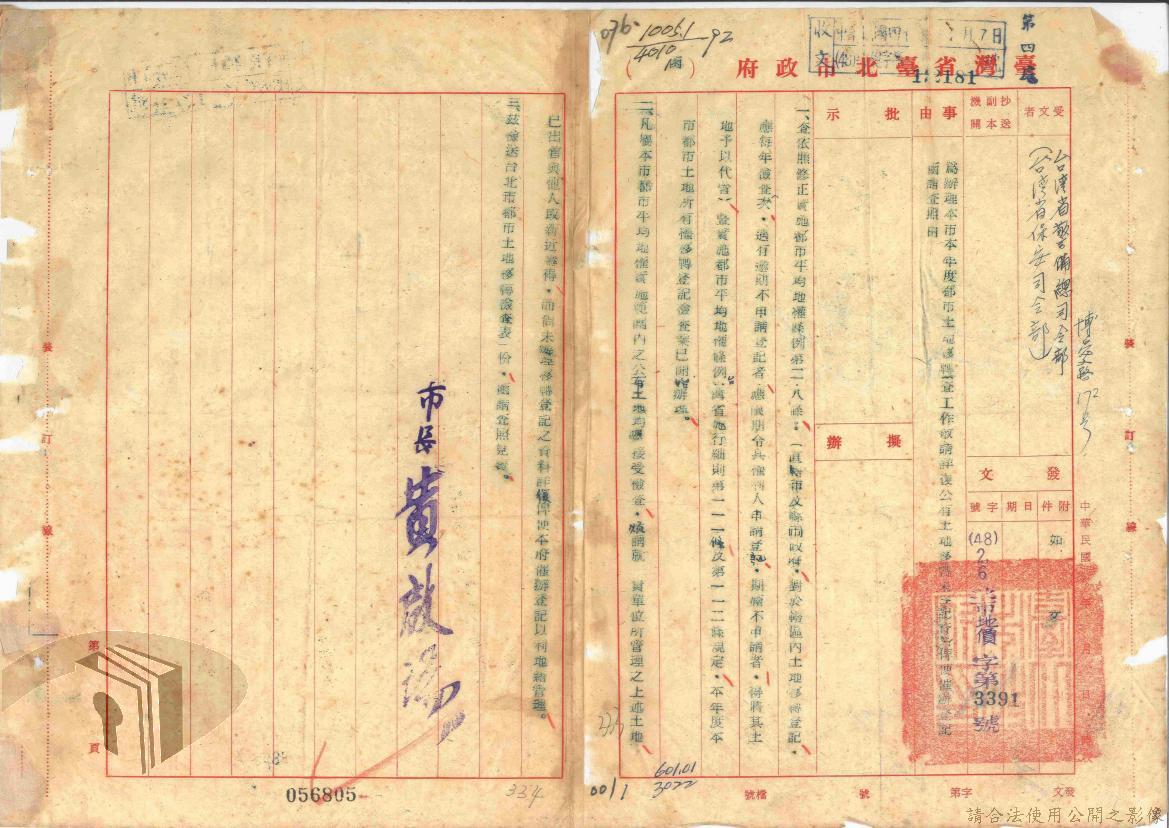 第四處
收文
月7日
181
076-
1006.1
4010
92
臺灣省臺北市政府
受文者
抄送副本機關
事由
批示
擬辦
台湾省警備總司令部
(台湾省保安司令部)
博愛路172号
為辦理本市本年度都市土地移轉檢查工作敬請詳復公有土地移轉未登記資料俾便催辦登記
函請查照由
發文
附件
日期
字號
如文
(48)
2
6
北市地價字第3391號
中華民國 年 月 日
一、查依照修正實施都市平均地權條例第二八條:(直轄市及縣市政府,對於轄區內土地移轉登記,
應每年檢查一次,遇有逾期不申請登記者,應限期令其權利人申請登記,期滿不申請者,得將其土
地予以代管)暨實施都市平均地權條例臺灣省施行細則第一一一條及第一一二條規定,本年度本
市都市土地所有權移轉登記檢查業已開始辦理。
二、凡屬本市都市平均地權實施範圍內之公有土地均應接受檢查,煩請就 貴單位所管理之上述土地
已出售與他人或新近獲得,而尚未辦理移轉登記之資料詳復俾便本府催辦登記以利地籍管理。
三、茲檢送台北市都市土地移轉檢查表一份,敬請查照見復。
市長黃啟瑞
裝
訂
線
第
頁
裝
訂
線
056805
334
335
00/1
601.01
3022
檔號
發文 字第 號
請合法使用公開之影像